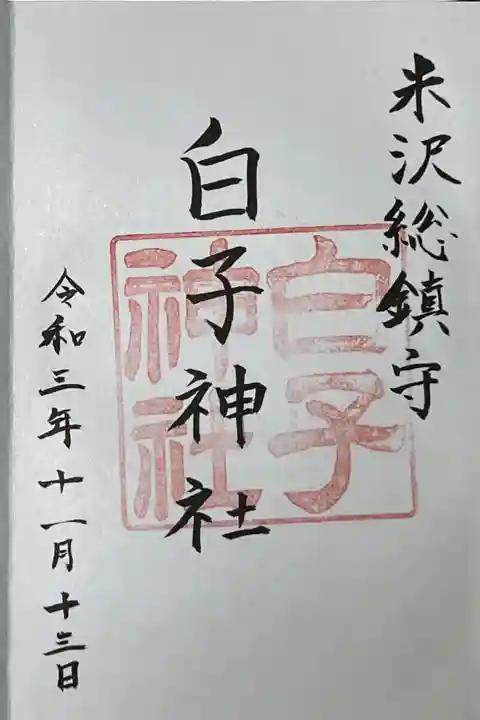 米沢総鎮守
白子神社
白子神社
令和三年十一月十三日